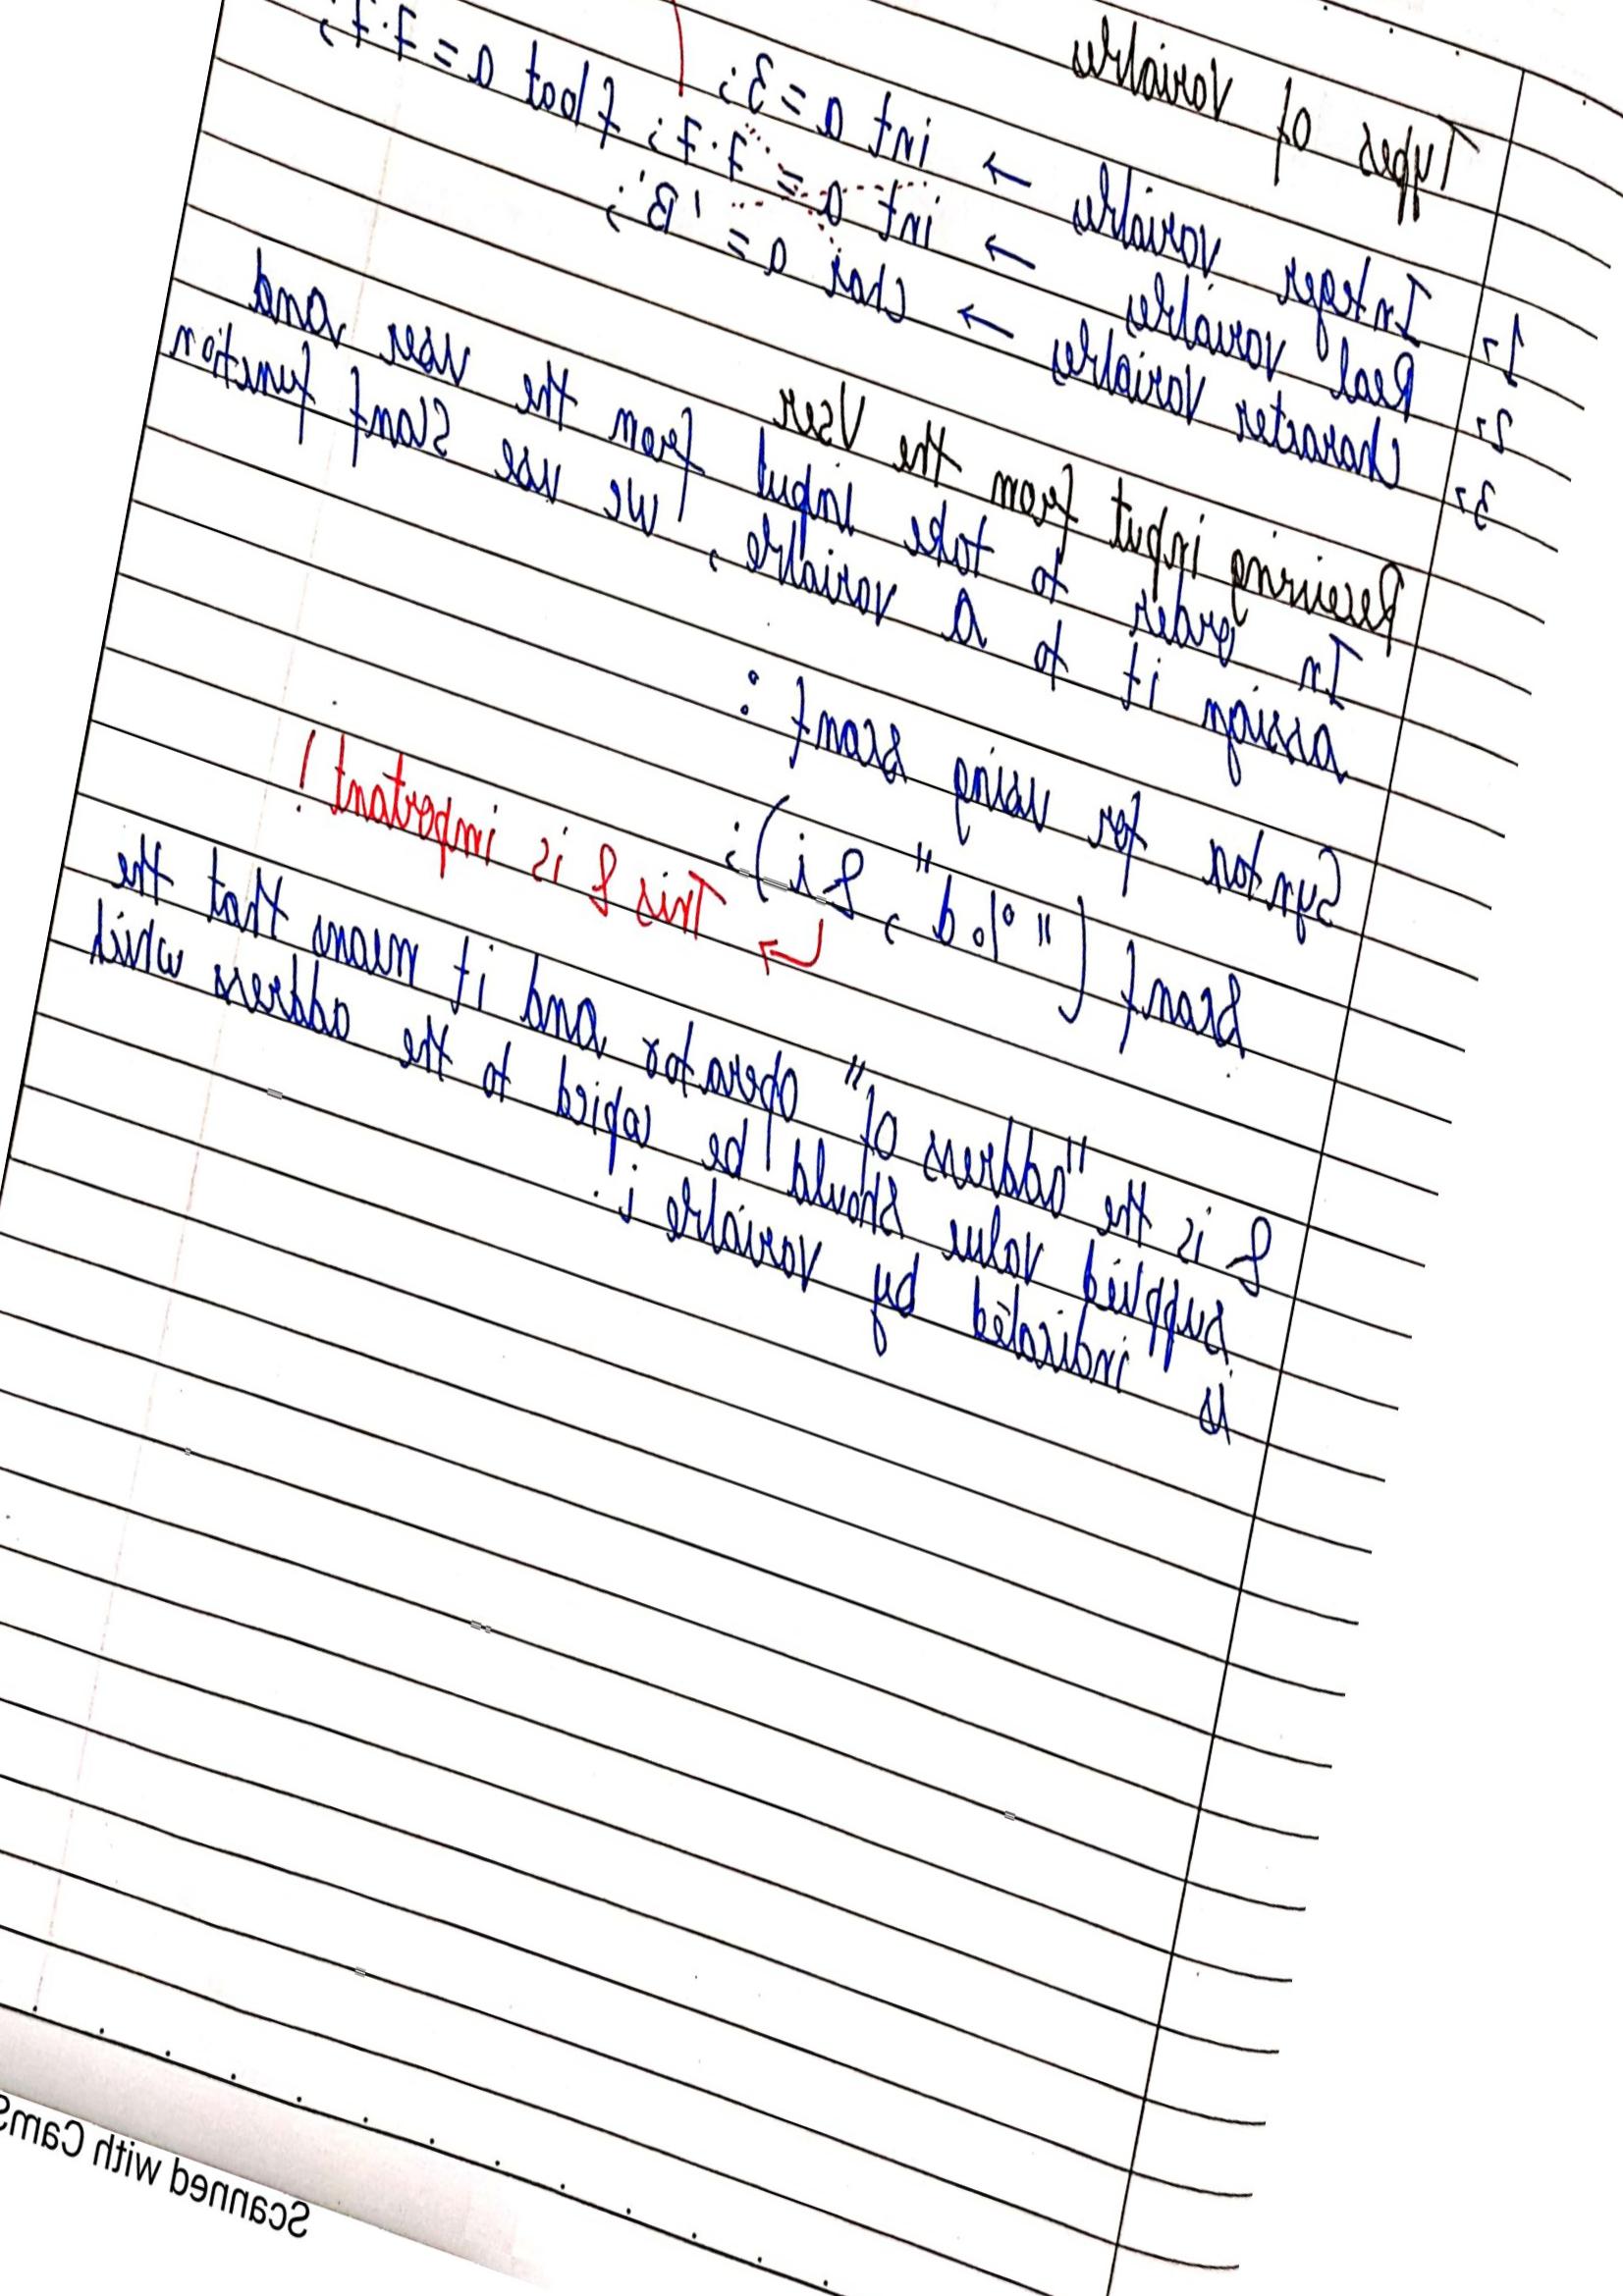 Types of Variables
1, Integer variables → int a = 3;
2, Real variables → int a = 7.7; float a = 7.7;
3, Character variables → char a = 'B';
Receiving input from the User
In order to take input from the user and
assign it to a variable, we use scanf function
Syntax for using scanf :
scanf ("%d", &i);
↳ This & is important!
& is the "address of" operator and it means that the
supplied value should be copied to the address which
is indicated by variable i.
Scanned with CamS